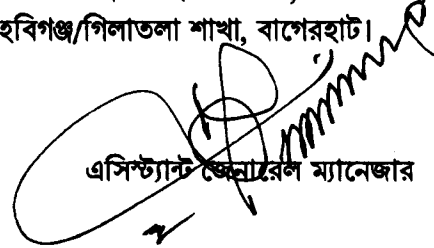 হবিগঞ্জ/গিলাতলা শাখা, বাগেরহাট।
এসিস্ট্যান্ট জেনারেল ম্যানেজার